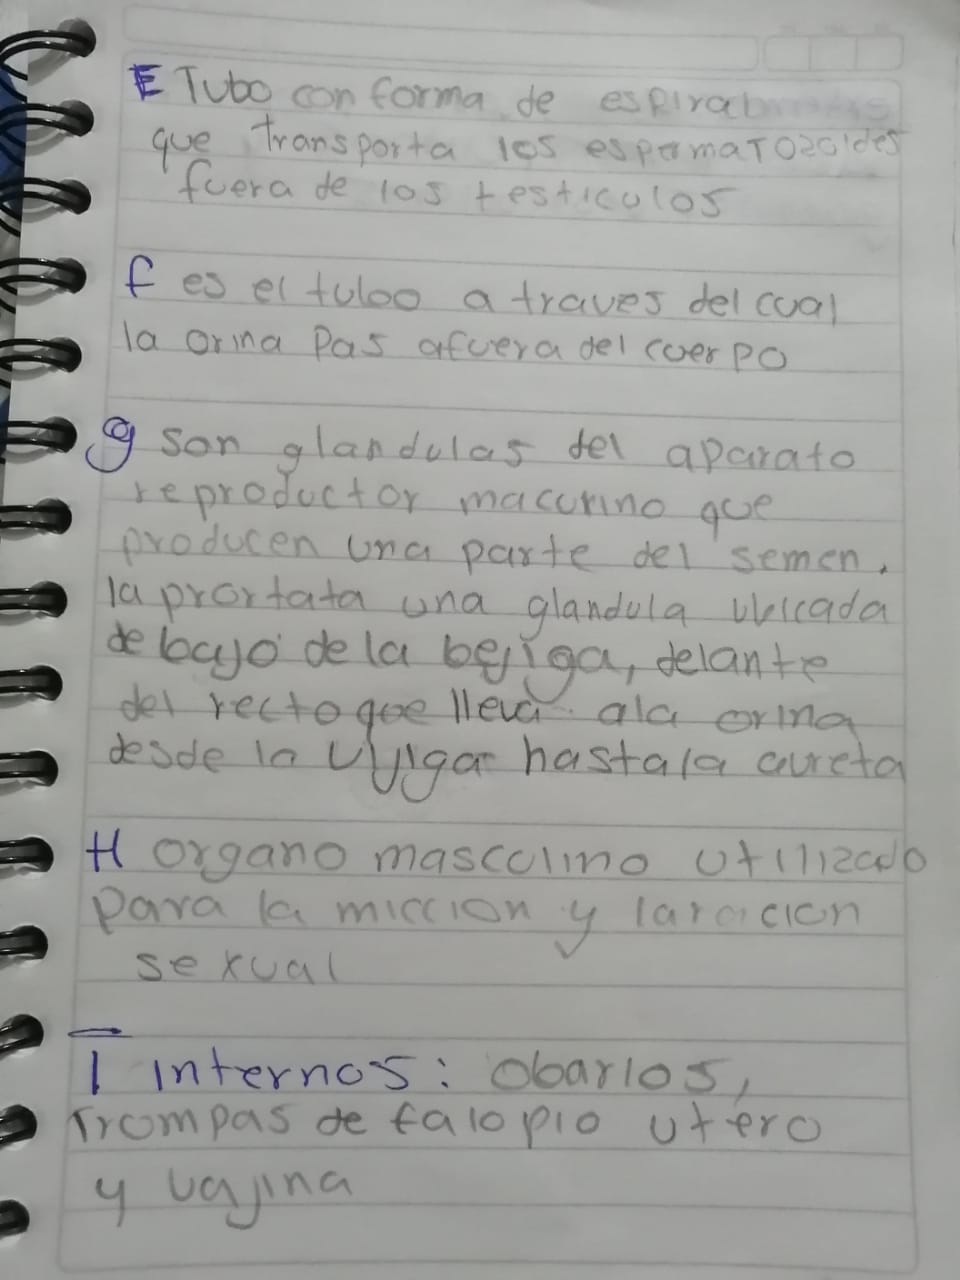 E Tubo con forma de espiral
que transporta los espermatozoides
fuera de los testiculos
f es el tuloo a traves del cual
la orina Pas afuera del cuerpo
g son glandulas del aparato
reproductor macurino que
producen una parte del semen.
la prortata una glandula ubicada
de bajo de la bejiga, delante
del recto que lleva ala orina
desde la vyigar hasta la aureta
H organo masculino utilizado
para la miccion y laracion
sexual
I internos: obarios,
Trompas de falopio utero
y vajina